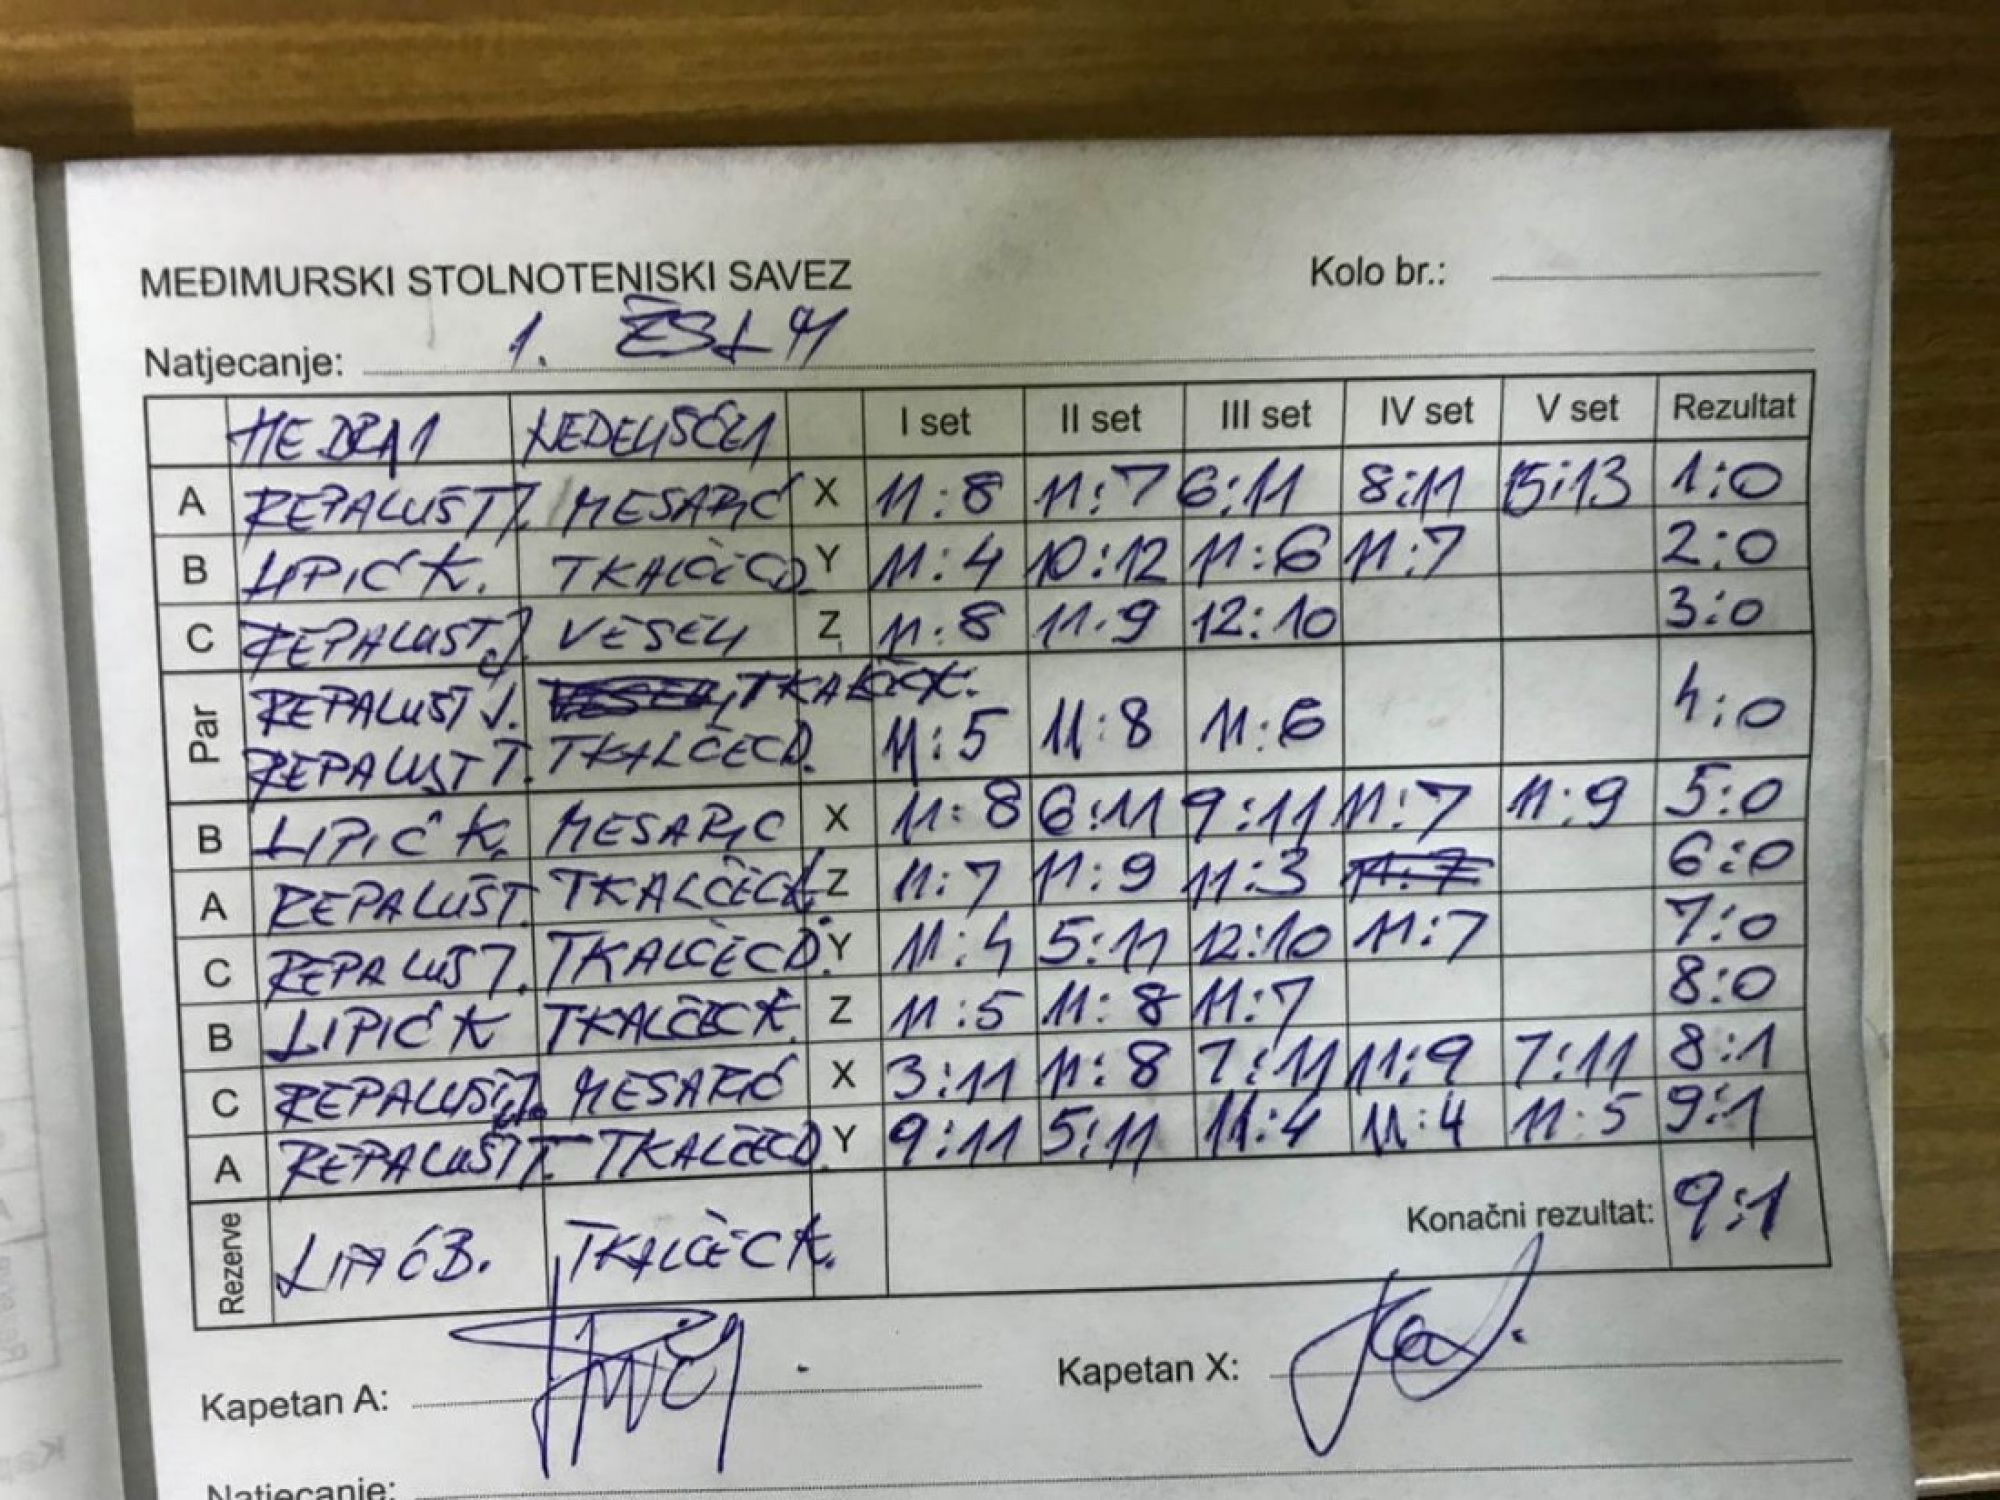 MEĐIMURSKI STOLNOTENISKI SAVEZ Kolo br.:
Natjecanje: 1. ŽSL M
NEDELIŠĆE 1 I set II set III set IV set V set Rezultat
A REPALUST T. MESARIĆ X 11:8 11:7 6:11 8:11 15:13 1:0
B LIPIĆ K. TKALČEC D. Y 11:4 10:12 11:6 11:7 2:0
C REPALUST J. VESELI Z 11:8 11:9 12:10 3:0
Par REPALUST J. TKALČEC K.
REPALUST T. TKALČEC D. 11:5 11:8 11:6 4:0
B LIPIĆ K. MESARIĆ X 11:8 6:11 9:11 11:7 11:9 5:0
A REPALUŠT. TKALČEC K. Z 11:7 11:9 11:3 11:7 6:0
C REPALUŠ J. TKALČEC D. Y 11:4 5:11 12:10 11:7 7:0
B LIPIĆ K TKALČEC K. Z 11:5 11:8 11:7 8:0
C REPALUŠT J. MESARIĆ X 3:11 11:8 7:11 11:9 7:11 8:1
A REPALUŠT T. TKALČEC D. Y 9:11 5:11 11:4 11:4 11:5 9:1
Rezerve B. TKALČEC K. Konačni rezultat: 9:1
Kapetan A: Kapetan X:
Natjecanje: